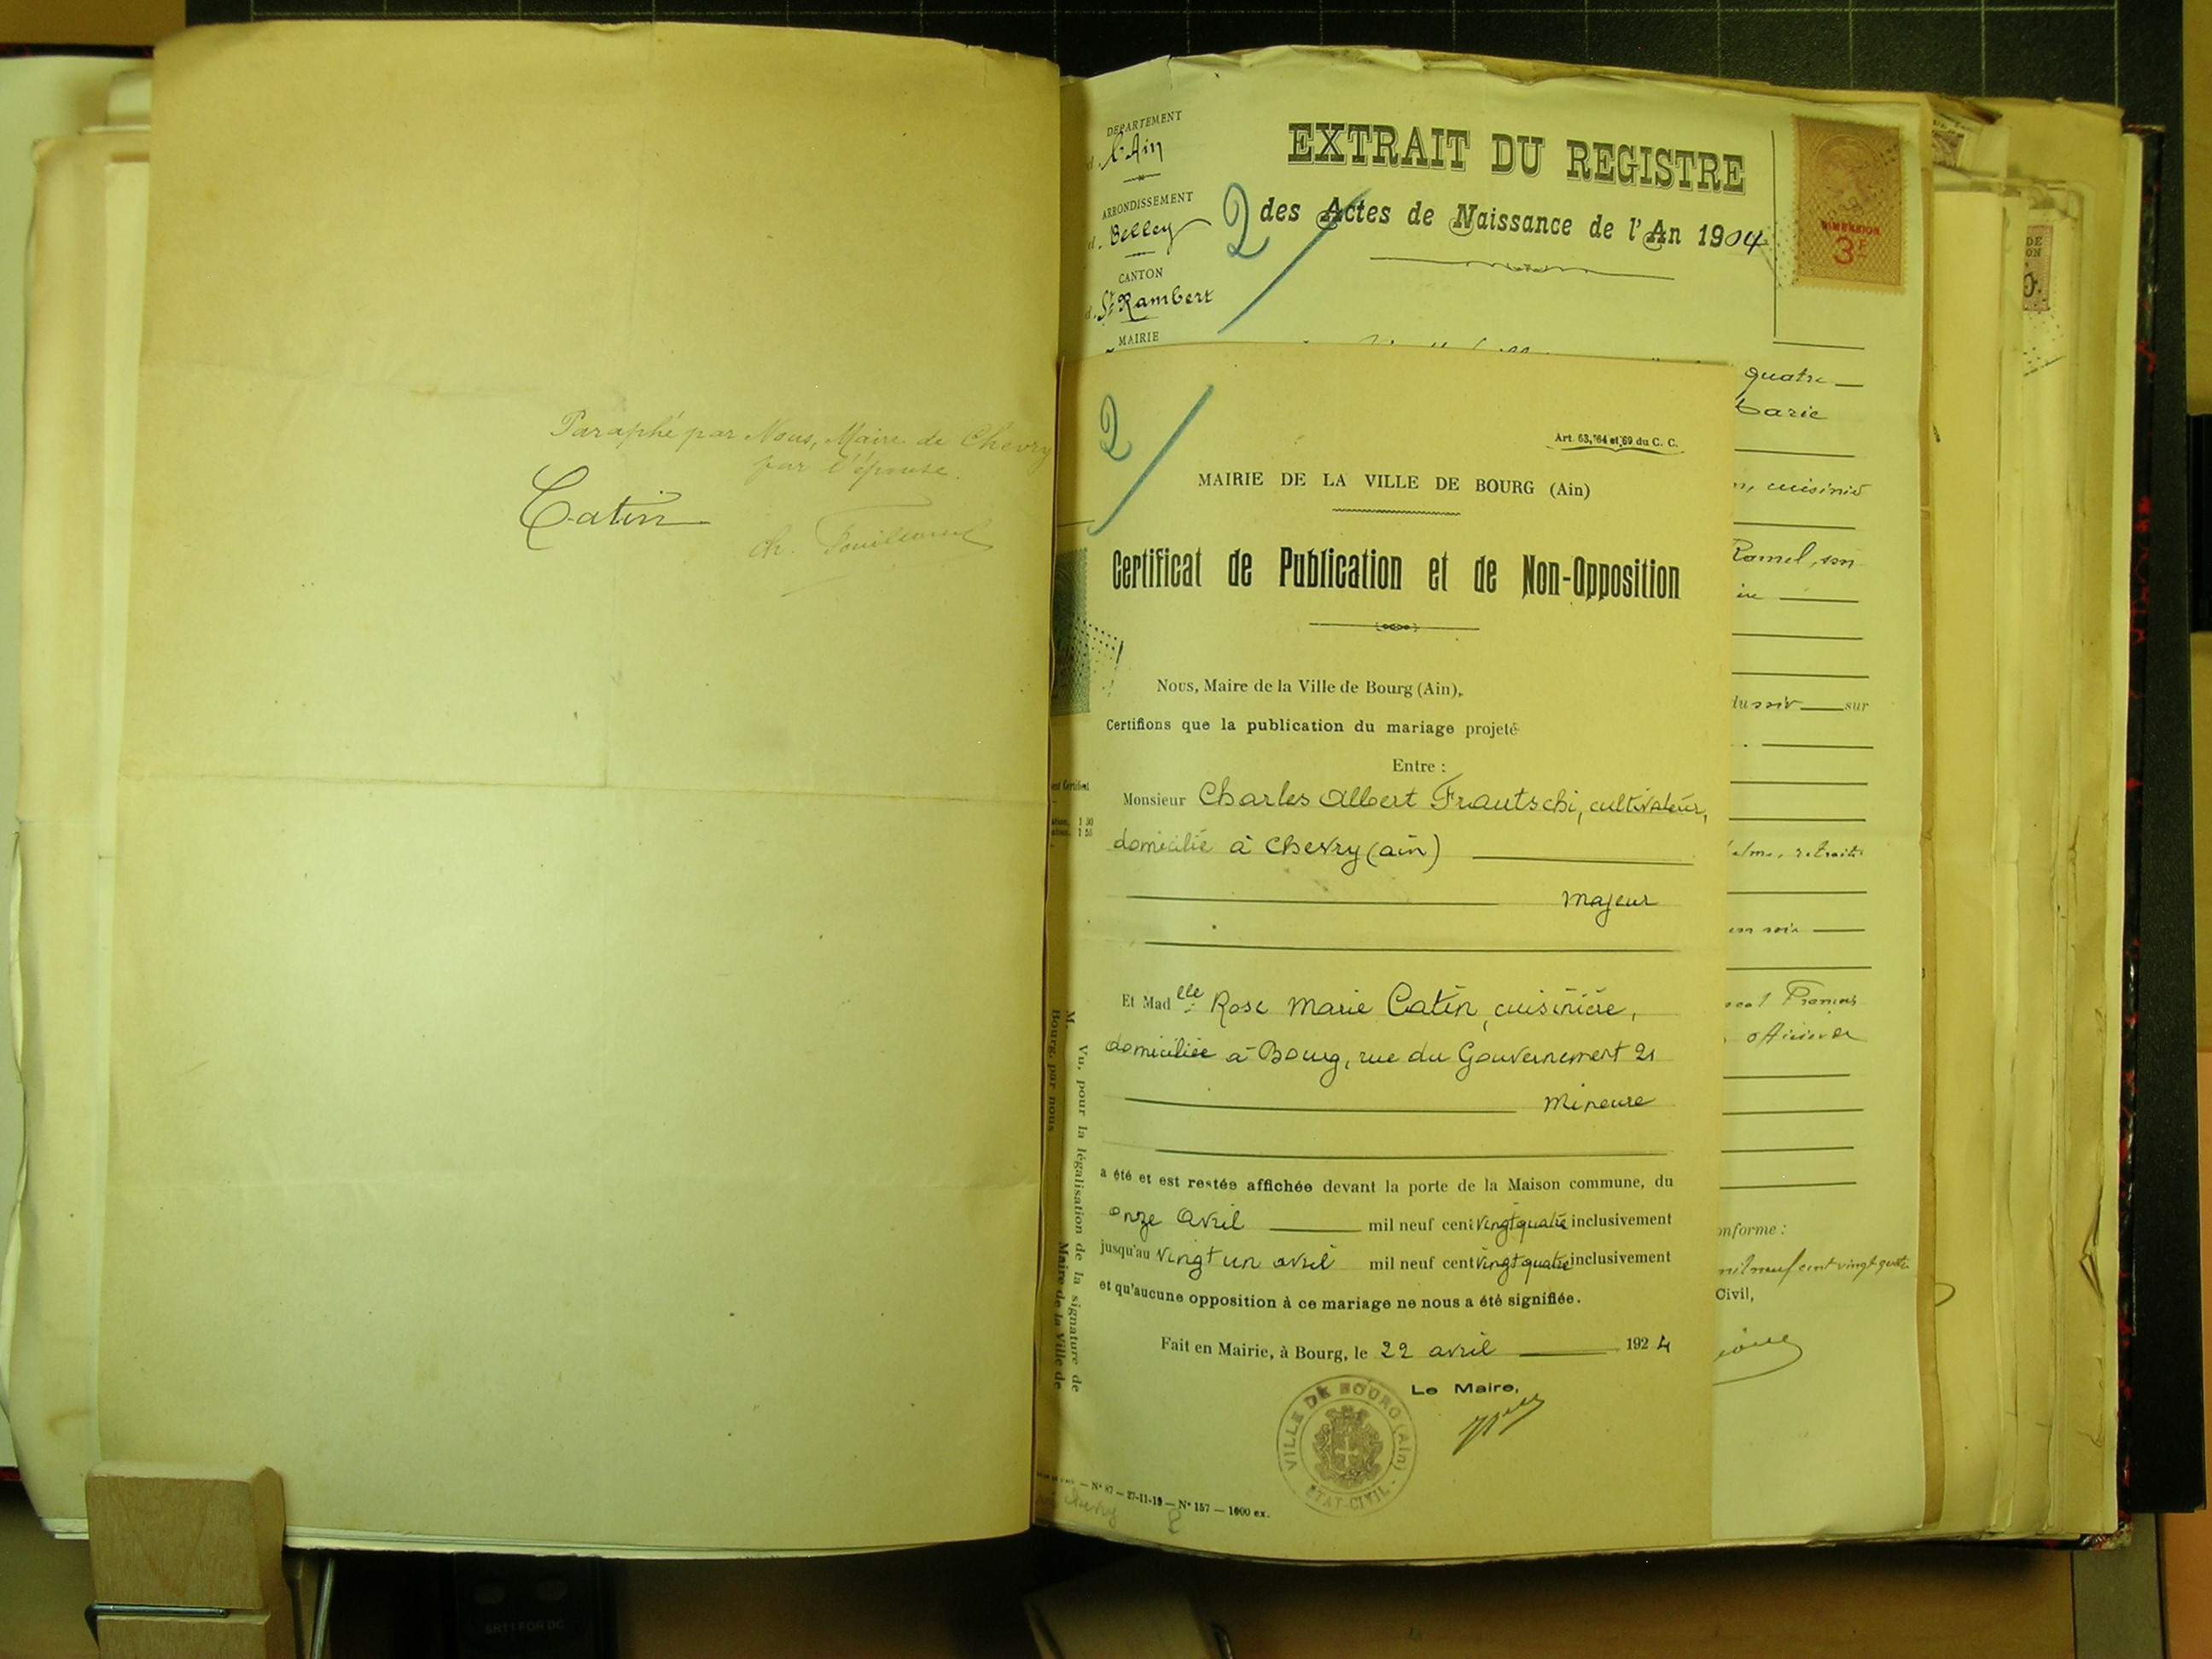 Paraphé par Nous, Maire de Chevry
par l'épouse.
Catin
DÉPARTEMENT
d. l'Ain
ARRONDISSEMENT
d. Belley
CANTON
d. St Rambert
MAIRIE
EXTRAIT DU REGISTRE
des Actes de Naissance de l'An 1904
2
DIMENSION
3F
quatre
n, cuisinier
Ramel, son
du soir sur
retraité
Civil,
onforme :
mil neuf cent vingt quatre
2
Art. 63, 64 et 69 du C. C.
MAIRIE DE LA VILLE DE BOURG (Ain)
Certificat de Publication et de Non-Opposition
Nous, Maire de la Ville de Bourg (Ain),
Certifions que la publication du mariage projeté
Entre :
Monsieur Charles Albert Frautschi, cultivateur,
domicilié à Chevry (ain)
Majeur
Et Madelle Rose Marie Catin, cuisinière,
domiciliée à Bourg, rue du Gouvernement 21
Mineure
a été et est restée affichée devant la porte de la Maison commune, du
onze Avril mil neuf cent vingt quatre inclusivement
jusqu'au vingt un avril mil neuf cent vingt quatre inclusivement
et qu'aucune opposition à ce mariage ne nous a été signifiée.
Fait en Mairie, à Bourg, le 22 avril 1924
Le Maire,
VILLE DE BOURG (Ain)
ETAT-CIVIL
N° 87 — 27-11-19 — N° 157 — 1000 ex.
Vu, pour la légalisation de la signature de
M. Maire de la Ville de
Bourg, par nous